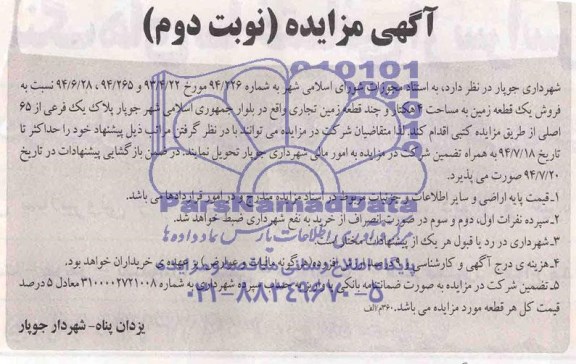 آگهی مزایده (نوبت دوم)
شهرداری جوپار در نظر دارد، به استناد مجوزات شورای اسلامی شهر به شماره ۹۴/۲۲۶ مورخ ۹۳/۴/۲۲ و ۹۴/۲۶۵ ، ۹۴/۶/۲۸ نسبت به
فروش یک قطعه زمین به مساحت ۴ هکتار و چند قطعه زمین تجاری واقع در بلوار جمهوری اسلامی شهر جوپار پلاک یک فرعی از ۶۵
اصلی از طریق مزایده کتبی اقدام کند. لذا متقاضیان شرکت در مزایده می توانند با در نظر گرفتن مراتب ذیل پیشنهاد خود را حداکثر تا
تاریخ ۹۴/۷/۱۸ به همراه تضمین شرکت در مزایده به امور مالی شهرداری جوپار تحویل نمایند. در ضمن بازگشایی پیشنهادات در تاریخ
۹۴/۷/۲۰ صورت می پذیرد.
۱-قیمت پایه اراضی و سایر اطلاعات و جزئیات مربوط در اسناد مزایده مندرج و در امور قراردادها می باشد.
۲-سپرده نفرات اول، دوم و سوم در صورت انصراف از خرید به نفع شهرداری ضبط خواهد شد.
۳-شهرداری در رد یا قبول هر یک از پیشنهادات مختار است.
۴-هزینه ی درج آگهی و کارشناسی و ۹ درصد ارزش افزوده (هرگونه مالیات و عوارض) بر عهده ی خریداران خواهد بود.
۵-تضمین شرکت در مزایده به صورت ضمانتنامه بانکی یا واریز به حساب سپرده شهرداری به شماره ۳۱۰۰۰۰۲۷۲۱۰۰۸ معادل ۵ درصد
قیمت کل هر قطعه مورد مزایده می باشد. ۳۶۰م/الف
یزدان پناه- شهردار جوپار
010101
ParsNamadData
مرکز فرآوری اطلاعات پارس نماد داده ها
پایگاه اطلاع رسانی مناقصه و مزایده
۰۲۱-۸۸۳۴۹۶۷۰-۵